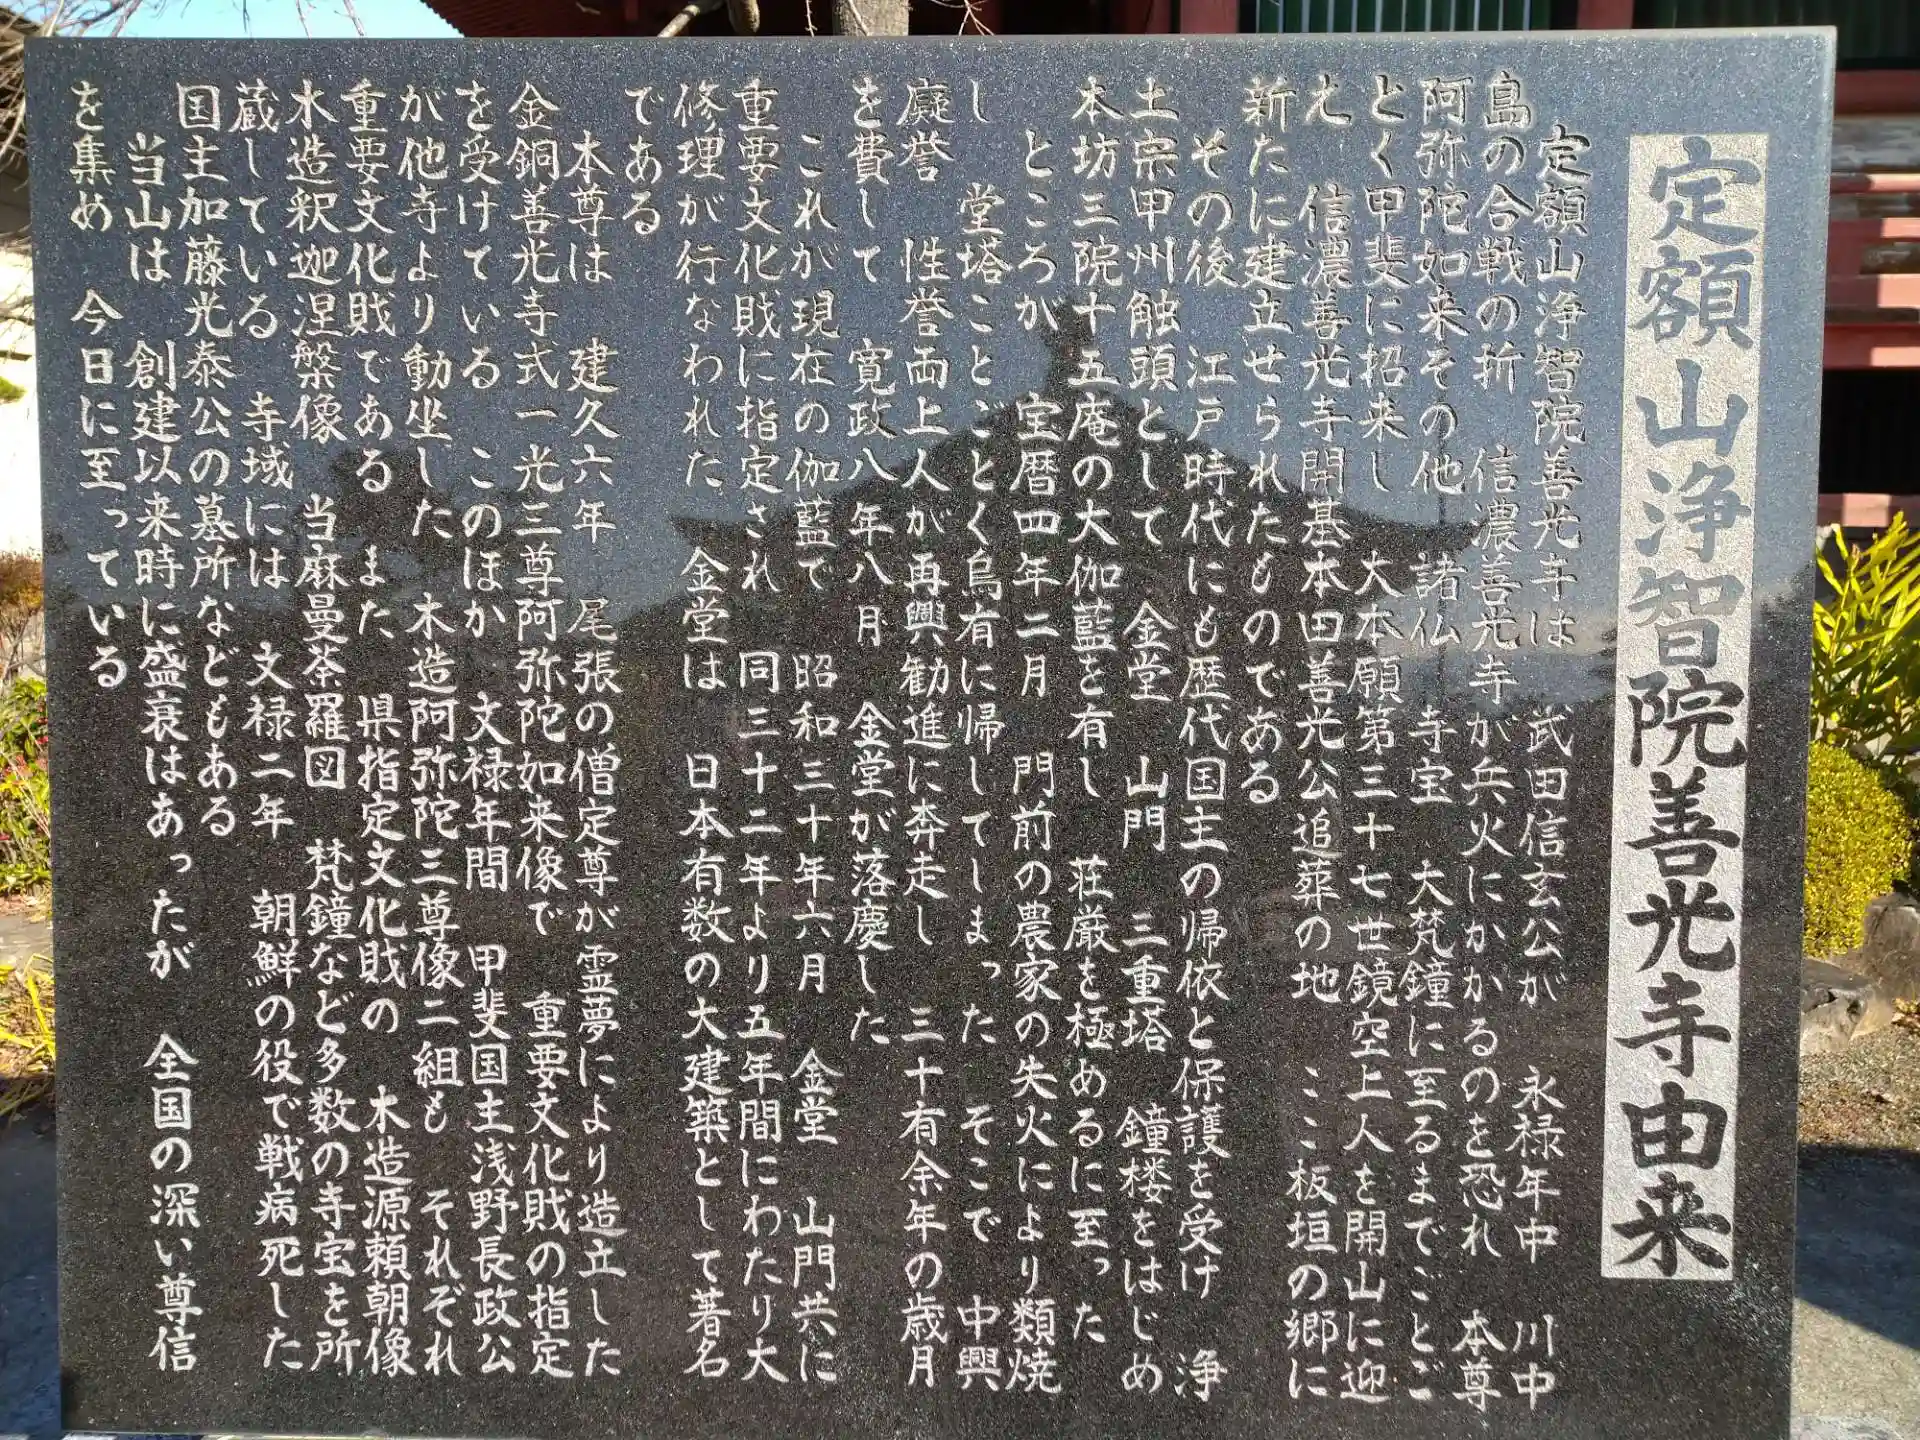 定額山浄智院善光寺由来
定額山浄智院善光寺は　武田信玄公が　永禄年中　川中
島の合戦の折　信濃善光寺が兵火にかかるのを恐れ　本尊
阿弥陀如来その他　諸仏　寺宝　大梵鐘に至るまでことご
とく甲斐に招来し　大本願第三十七世鏡空上人を開山に迎
え　信濃善光寺開基本田善光公追葬の地　ここ板垣の郷に
新たに建立せられたものである
その後　江戸時代にも歴代国主の帰依と保護を受け　浄
土宗甲州触頭として　金堂　山門　三重塔　鐘楼をはじめ
本坊三院十五庵の大伽藍を有し　荘厳を極めるに至った
ところが　宝暦四年二月　門前の農家の失火により類焼
し　堂塔ことごとく烏有に帰してしまった　そこで　中興
癈誉　性誉両上人が再興勧進に奔走し　三十有余年の歳月
を費して　寛政八年八月　金堂が落慶した
これが現在の伽藍で　昭和三十年六月　金堂　山門共に
重要文化財に指定され　同三十二年より五年間にわたり大
修理が行なわれた　金堂は　日本有数の大建築として著名
である
本尊は　建久六年　尾張の僧定尊が霊夢により造立した
金銅善光寺式一光三尊阿弥陀如来像で　重要文化財の指定
を受けている　このほか　文禄年間　甲斐国主浅野長政公
が他寺より動坐した　木造阿弥陀三尊像二組も　それぞれ
重要文化財である　また　県指定文化財の　木造源頼朝像
木造釈迦涅槃像　当麻曼荼羅図　梵鐘など多数の寺宝を所
蔵している　寺域には　文禄二年　朝鮮の役で戦病死した
国主加藤光泰公の墓所などもある
当山は　創建以来時に盛衰はあったが　全国の深い尊信
を集め　今日に至っている